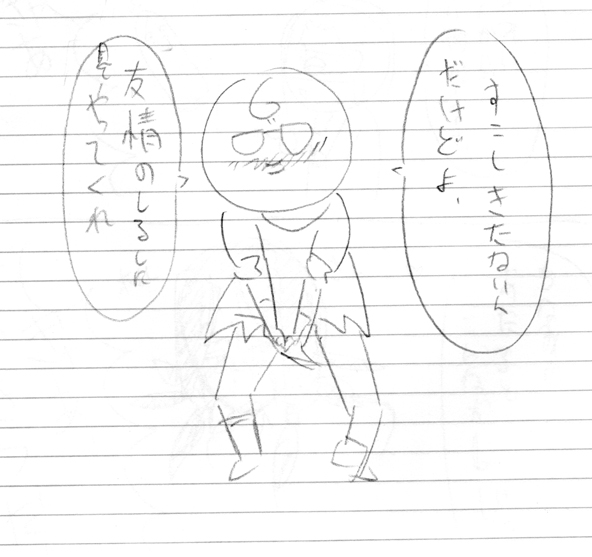 すこしきたないん
だけどよ、
友情のしるしに
やってくれ